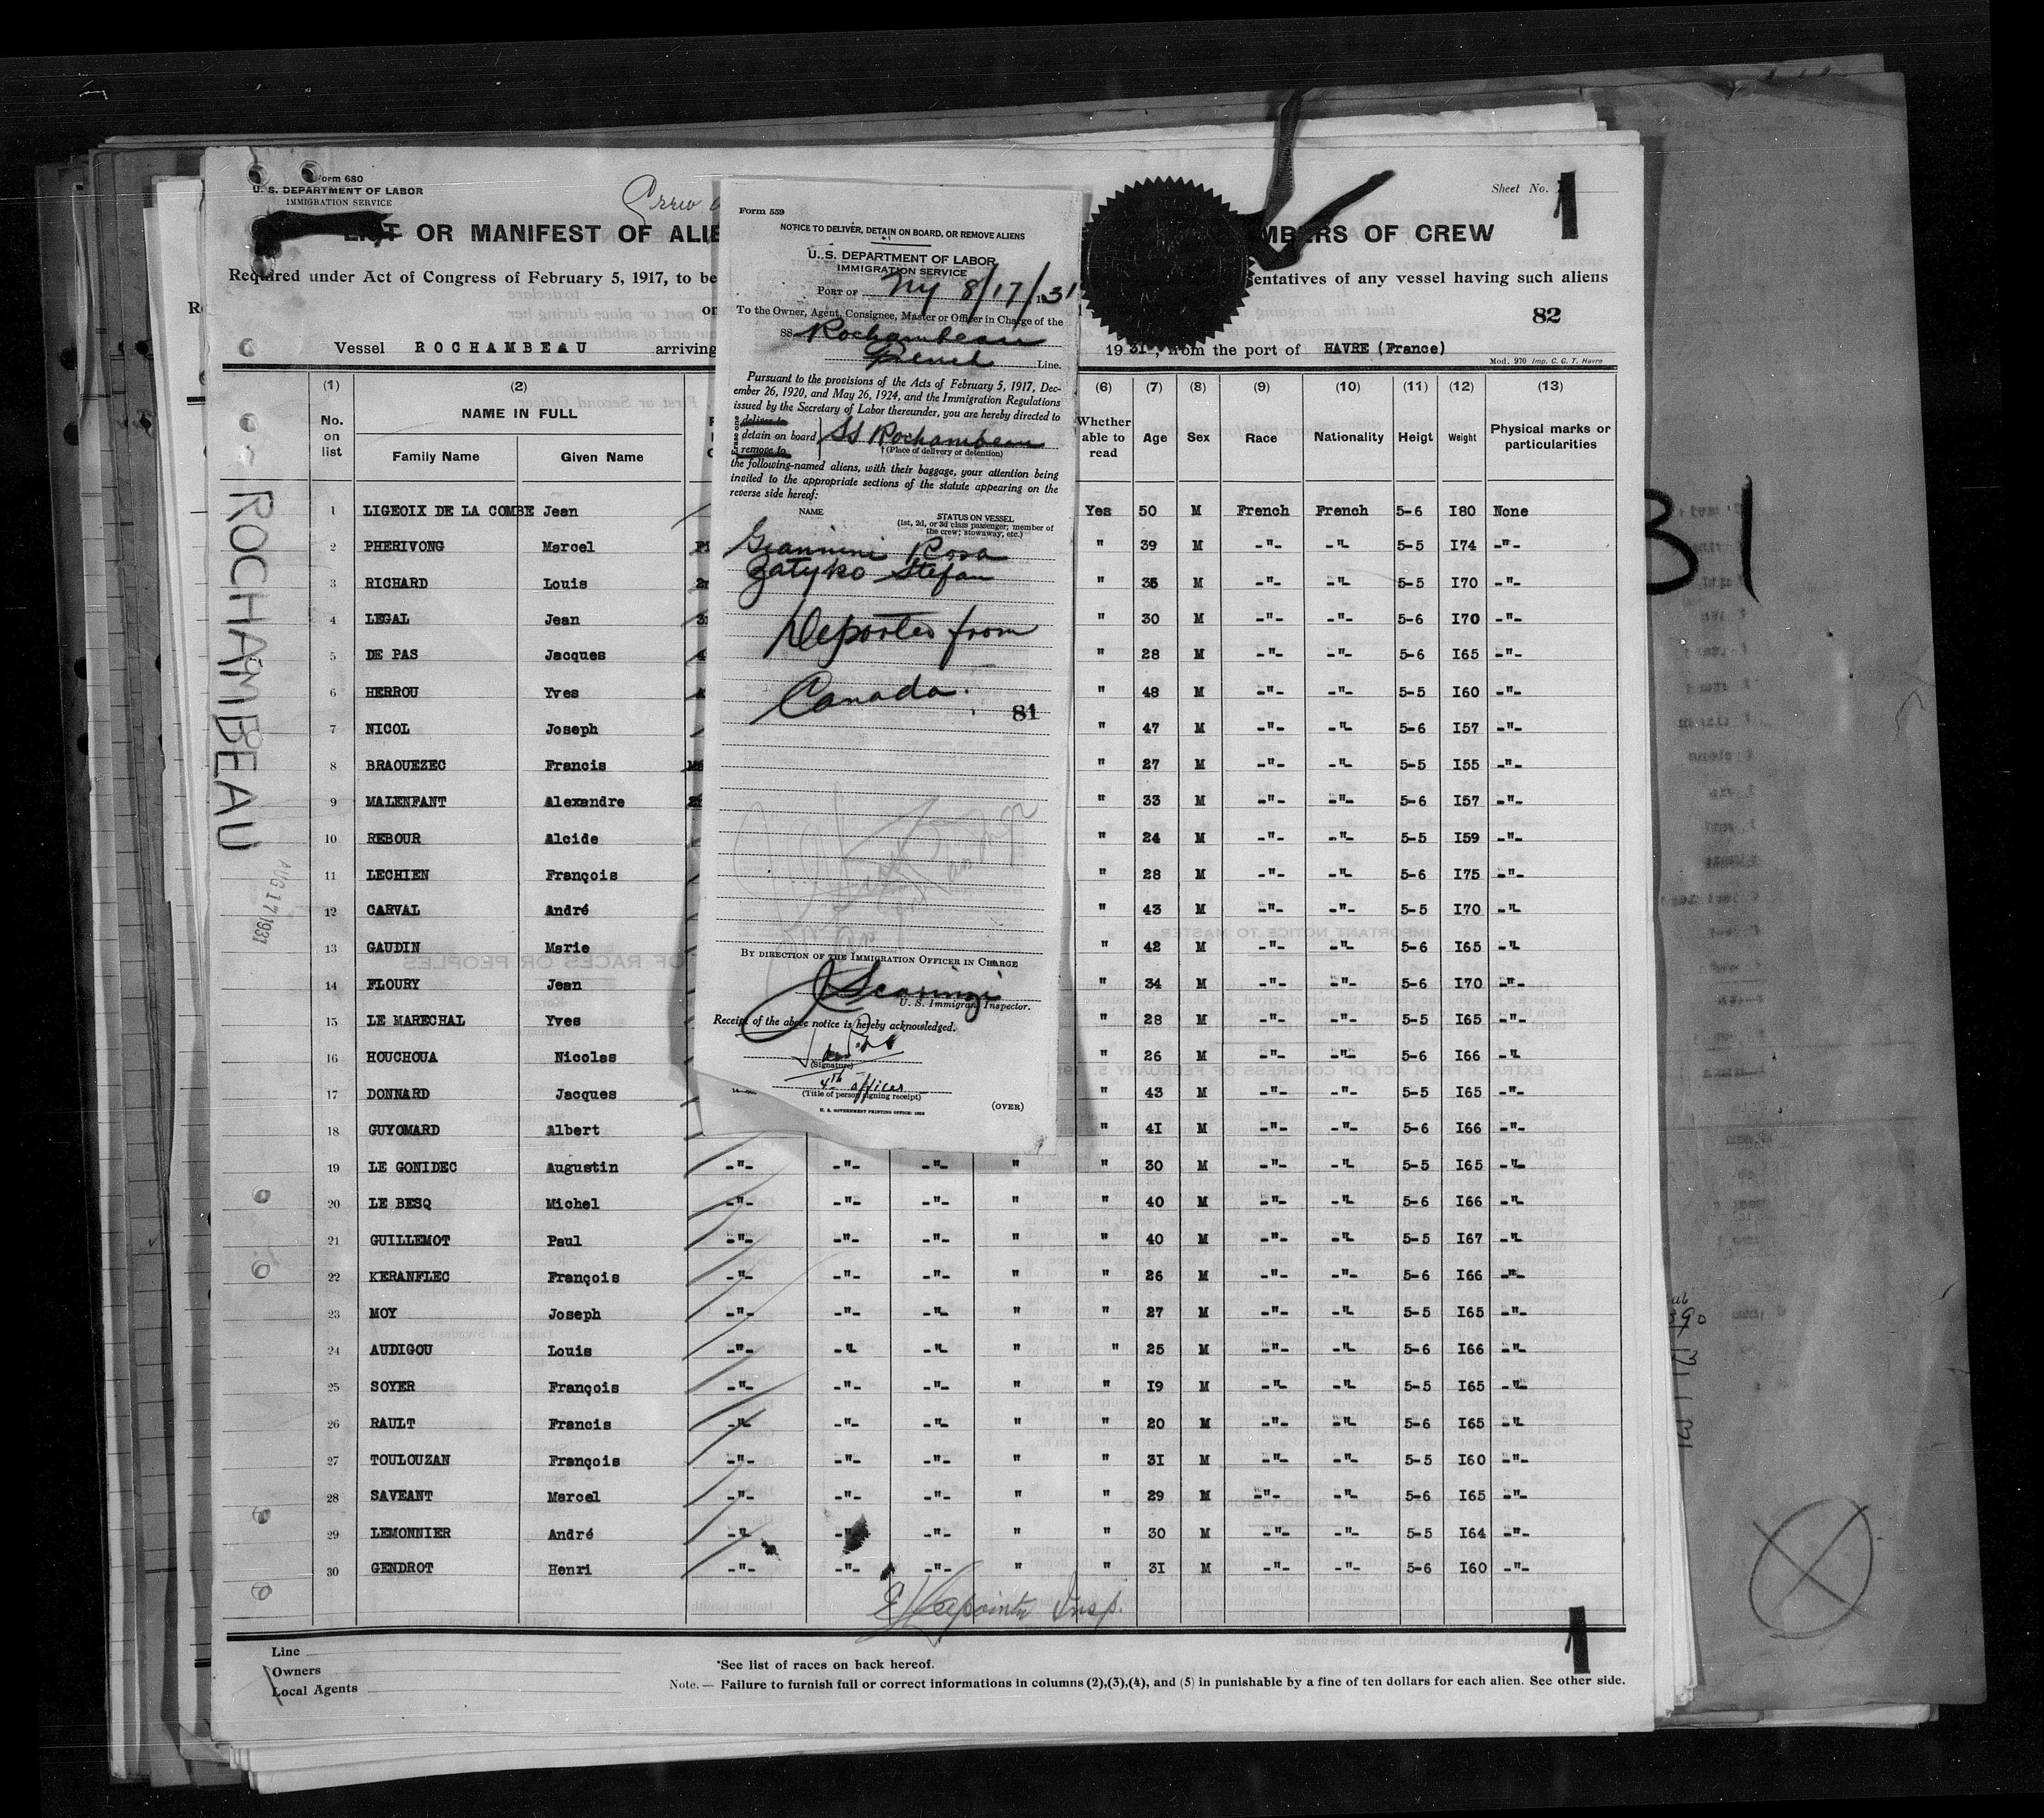 Form 680
U. S. DEPARTMENT OF LABOR
IMMIGRATION SERVICE
Sheet No. 1
LIST OR MANIFEST OF ALIE
MBERS OF CREW
Required under Act of Congress of February 5, 1917, to be
sentatives of any vessel having such aliens
82
Vessel ROCHAMBEAU arriving
1931, from the port of HAVRE (France)
Mod. 970 Imp. C. G. T. Havre
Form 559
NOTICE TO DELIVER, DETAIN ON BOARD, OR REMOVE ALIENS
U. S. DEPARTMENT OF LABOR
IMMIGRATION SERVICE
PORT OF NY 8/17/31
To the Owner, Agent, Consignee, Master or Officer in Charge of the
SS Rochambeau
French Line.
Pursuant to the provisions of the Acts of February 5, 1917, Dec-
ember 26, 1920, and May 26, 1924, and the Immigration Regulations
issued by the Secretary of Labor thereunder, you are hereby directed to
Erase one
deliver to
detain on board SS Rochambeau
remove to († Place of delivery or detention)
the following-named aliens, with their baggage, your attention being
invited to the appropriate sections of the statute appearing on the
reverse side hereof:
NAME STATUS ON VESSEL
(1st, 2d, or 3d class passenger; member of
the crew; stowaway, etc.)
Giannini Rosa
Zatyko Stefan
Deported from
Canada.
81
BY DIRECTION OF THE IMMIGRATION OFFICER IN CHARGE
U. S. Immigrant Inspector.
Receipt of the above notice is hereby acknowledged.
(Signature)
4th officer
(Title of person signing receipt)
(OVER)
U. S. GOVERNMENT PRINTING OFFICE
(1) (2) (6) (7) (8) (9) (10) (11) (12) (13)
No. on list NAME IN FULL Whether able to read Age Sex Race Nationality Heigt Weight Physical marks or particularities
Family Name Given Name
1 LIGEOIX DE LA COMBE Jean Yes 50 M French French 5-6 I80 None
2 PHERIVONG Marcel " 39 M -"- -"- 5-5 I74 -"-
3 RICHARD Louis " 35 M -"- -"- 5-5 I70 -"-
4 LEGAL Jean " 30 M -"- -"- 5-6 I70 -"-
5 DE PAS Jacques " 28 M -"- -"- 5-6 I65 -"-
6 HERROU Yves " 48 M -"- -"- 5-5 I60 -"-
7 NICOL Joseph " 47 M -"- -"- 5-6 I57 -"-
8 BRAOUEZEC Francis " 27 M -"- -"- 5-5 I55 -"-
9 MALENFANT Alexandre " 33 M -"- -"- 5-6 I57 -"-
10 REBOUR Alcide " 24 M -"- -"- 5-5 I59 -"-
11 LECHIEN François " 28 M -"- -"- 5-6 I75 -"-
12 CARVAL André " 43 M -"- -"- 5-5 I70 -"-
13 GAUDIN Marie " 42 M -"- -"- 5-6 I65 -"-
14 FLOURY Jean " 34 M -"- -"- 5-6 I70 -"-
15 LE MARECHAL Yves " 28 M -"- -"- 5-5 I65 -"-
16 HOUCHOUA Nicolas " 26 M -"- -"- 5-6 I66 -"-
17 DONNARD Jacques " 43 M -"- -"- 5-5 I65 -"-
18 GUYOMARD Albert " 4I M -"- -"- 5-6 I66 -"-
19 LE GONIDEC Augustin -"- -"- -"- " " 30 M -"- -"- 5-5 I65 -"-
20 LE BESQ Michel -"- -"- -"- " " 40 M -"- -"- 5-6 I66 -"-
21 GUILLEMOT Paul -"- -"- -"- " " 40 M -"- -"- 5-5 I67 -"-
22 KERANFLEC François -"- -"- -"- " " 26 M -"- -"- 5-6 I66 -"-
23 MOY Joseph -"- -"- -"- " " 27 M -"- -"- 5-5 I65 -"-
24 AUDIGOU Louis -"- -"- -"- " " 25 M -"- -"- 5-6 I66 -"-
25 SOYER François -"- -"- -"- " " I9 M -"- -"- 5-5 I65 -"-
26 RAULT Francis -"- -"- -"- " " 20 M -"- -"- 5-6 I65 -"-
27 TOULOUZAN François -"- -"- -"- " " 3I M -"- -"- 5-5 I60 -"-
28 SAVEANT Marcel -"- -"- -"- " " 29 M -"- -"- 5-6 I65 -"-
29 LEMONNIER André -"- -"- -"- " " 30 M -"- -"- 5-5 I64 -"-
30 GENDROT Henri -"- -"- -"- " " 3I M -"- -"- 5-6 I60 -"-
Insp.
ROCHAMBEAU
AUG 17 1931
Line
Owners
Local Agents
*See list of races on back hereof.
Note. — Failure to furnish full or correct informations in columns (2),(3),(4), and (5) in punishable by a fine of ten dollars for each alien. See other side.
31